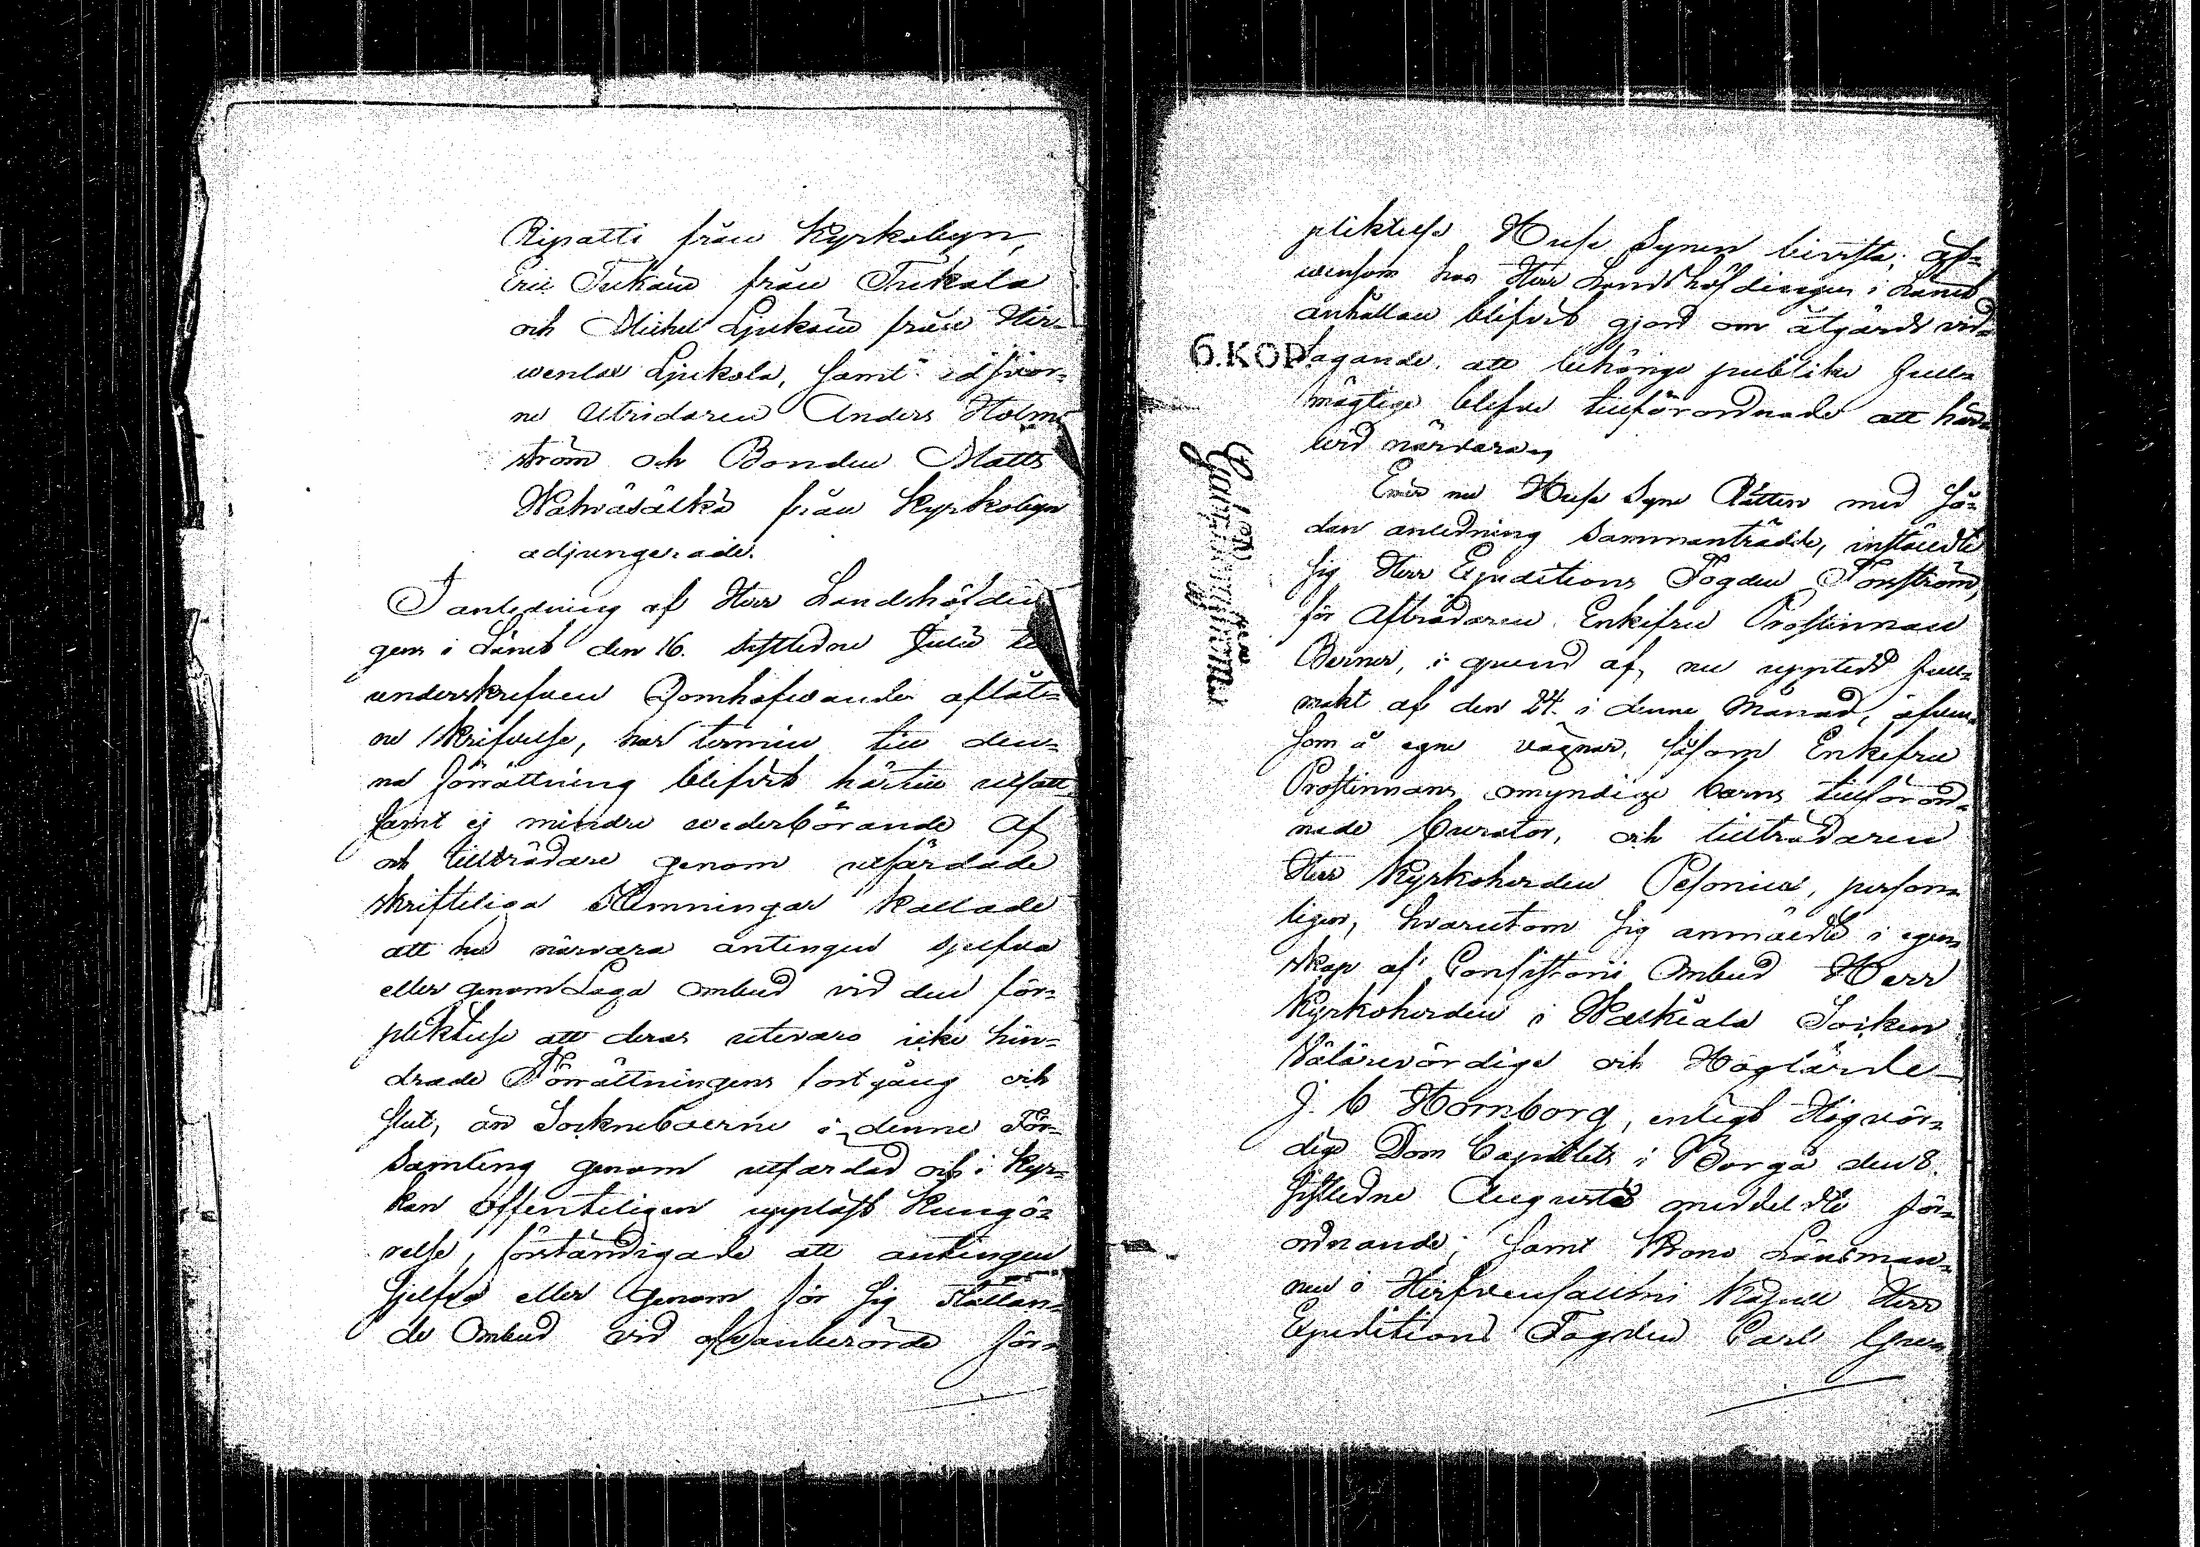 Ripatti från Kyrkobyn,
Eric Tiukain från Tiukala
och Michel Ljukoin från Hir-
wenlax Ljukola, samt edsvor-
ne Utridaren Anders Holm-
ström och Bonden Matts
från Kyrkobyn
adjungerade.
I anledning af Herr Landshöfdin
gens i Länet den 16. sistledne Julii till
underskrefven Domhafvande aflåt-
ne skrifvelse, har termin till den-
na förrättning blifvit härtill utsatt
samt ej mindre wederbörande Af
och tillträdare genom utfärdade
skriftliga Stemningar kallade
att nu närvara antingen sjelfva
eller genom Laga Ombud vid den för-
pliktelse att deras utevaro icke hin-
drade Förrättningens fortgång och
slut, än Sockneboerne i denne För-
samling genom utfärdad och i Kyr-
kan offenteligen uppläst Kungö-
relse, förständigade att antingen
sjelfva eller genom för sig ställan-
de Ombud vid ofvanberörde för-
pliktelse Huse Synen bivista; äf-
wensom hos Herr Landshöfdingen i Länet
anhållan blifvit gjord om åtgärds vid-
tagande, att behörige publike full-
mägtige blefve tillförordnade att här-
wid närvara,
6.KOP.
nu Husesyne Rätten med så-
dan anledning sammanträdde, instälde
sig Herr Expeditions Fogden Forsström,
för Afträdaren Enkefru Prostinnan
Berner, i grund af nu uppted full-
makt af den 24. i denne Månad, äfven-
som å egne vägnar, såsom Enkefru
Prostinnans omyndige barns tillförord-
nade Curator, och tillträdaren
Herr Kyrkoherden Pesonius, person-
ligen, hvarutom sig anmälde i egen-
skap af Consistorii Ombud Herr
Kyrkoherden i Walkiala Socken
Välärevördige och Höglärde
J. C Hornborg, enligt Högvör-
dige Dom Capitlets i Borgå den 8.
sistledne Augusti meddelte för-
ordnande; samt Krono Länsman-
nen i Hirfvensallmi Kapell Herr
Expeditions Fogden Carl